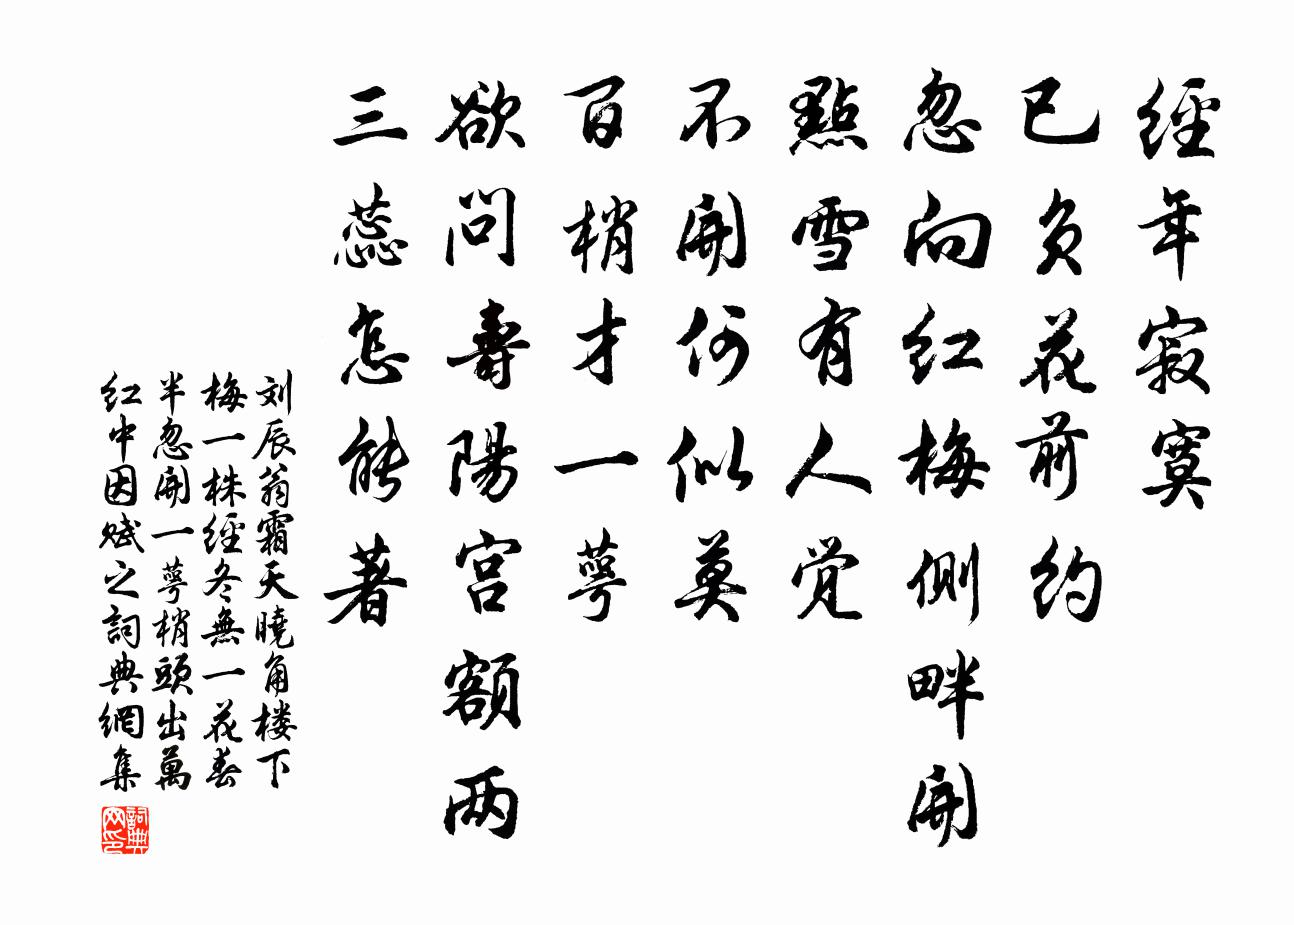 經年寂寞
已负花前约
忽向红梅侧畔開
點雪有人觉
不開何似莫
百梢才一萼
欲问壽陽宫额两
三蕊怎能著
刘辰翁霜天曉角楼下
梅一株經冬無一花春
半忽開一萼梢頭出萬
红中因赋之詞典網集
詞典
网印